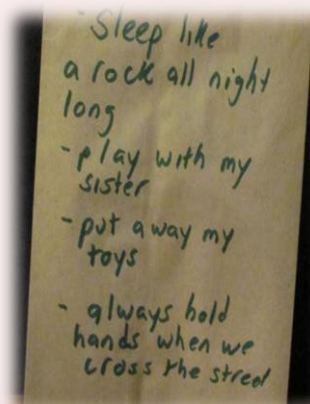 - Sleep like
a rock all night
long
- play with my
sister
- put away my
toys
- always hold
hands when we
cross the street